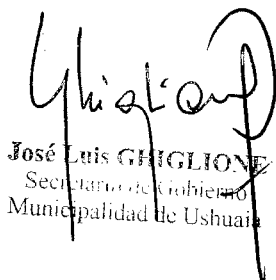 Ghiglione
José Luis GHIGLIONE
Secretario de Gobierno
Municipalidad de Ushuaia